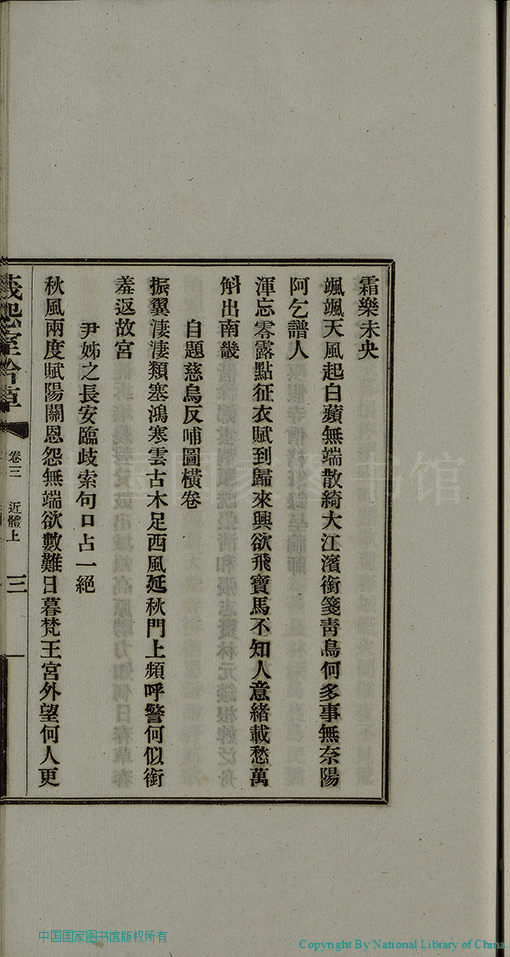 霜樂未央
颯颯天風起白蘋無端散綺大江濱銜箋青鳥何多事無奈陽
阿乞譜人
渾忘零露點征衣賦到歸來興欲飛寶馬不知人意緒載愁萬
斛出南畿
自題慈烏反哺圖橫卷
振翼淒淒類塞鴻寒雲古木足西風延秋門上頻呼警何似銜
羞返故宮
尹姊之長安臨歧索句口占一絕
秋風兩度賦陽關恩怨無端欲數難日暮梵王宮外望何人更
室拾草
卷三
近體上
三
中国国家图书馆版权所有
Copyright By National Library of China